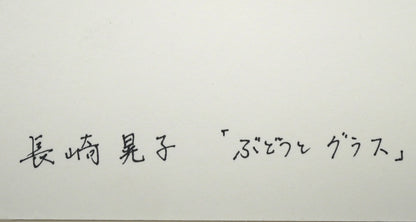 長崎晃子 「ぶどうとグラス」